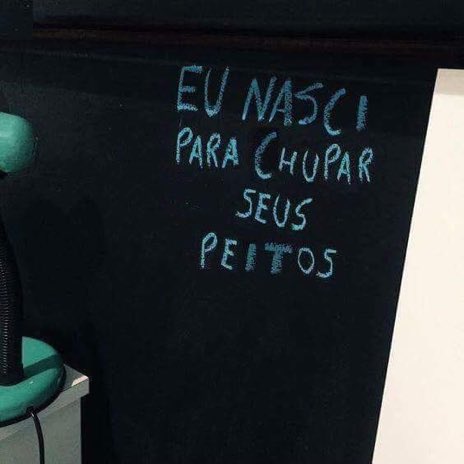 EU NASCI
PARA CHUPAR
SEUS
PEITOS